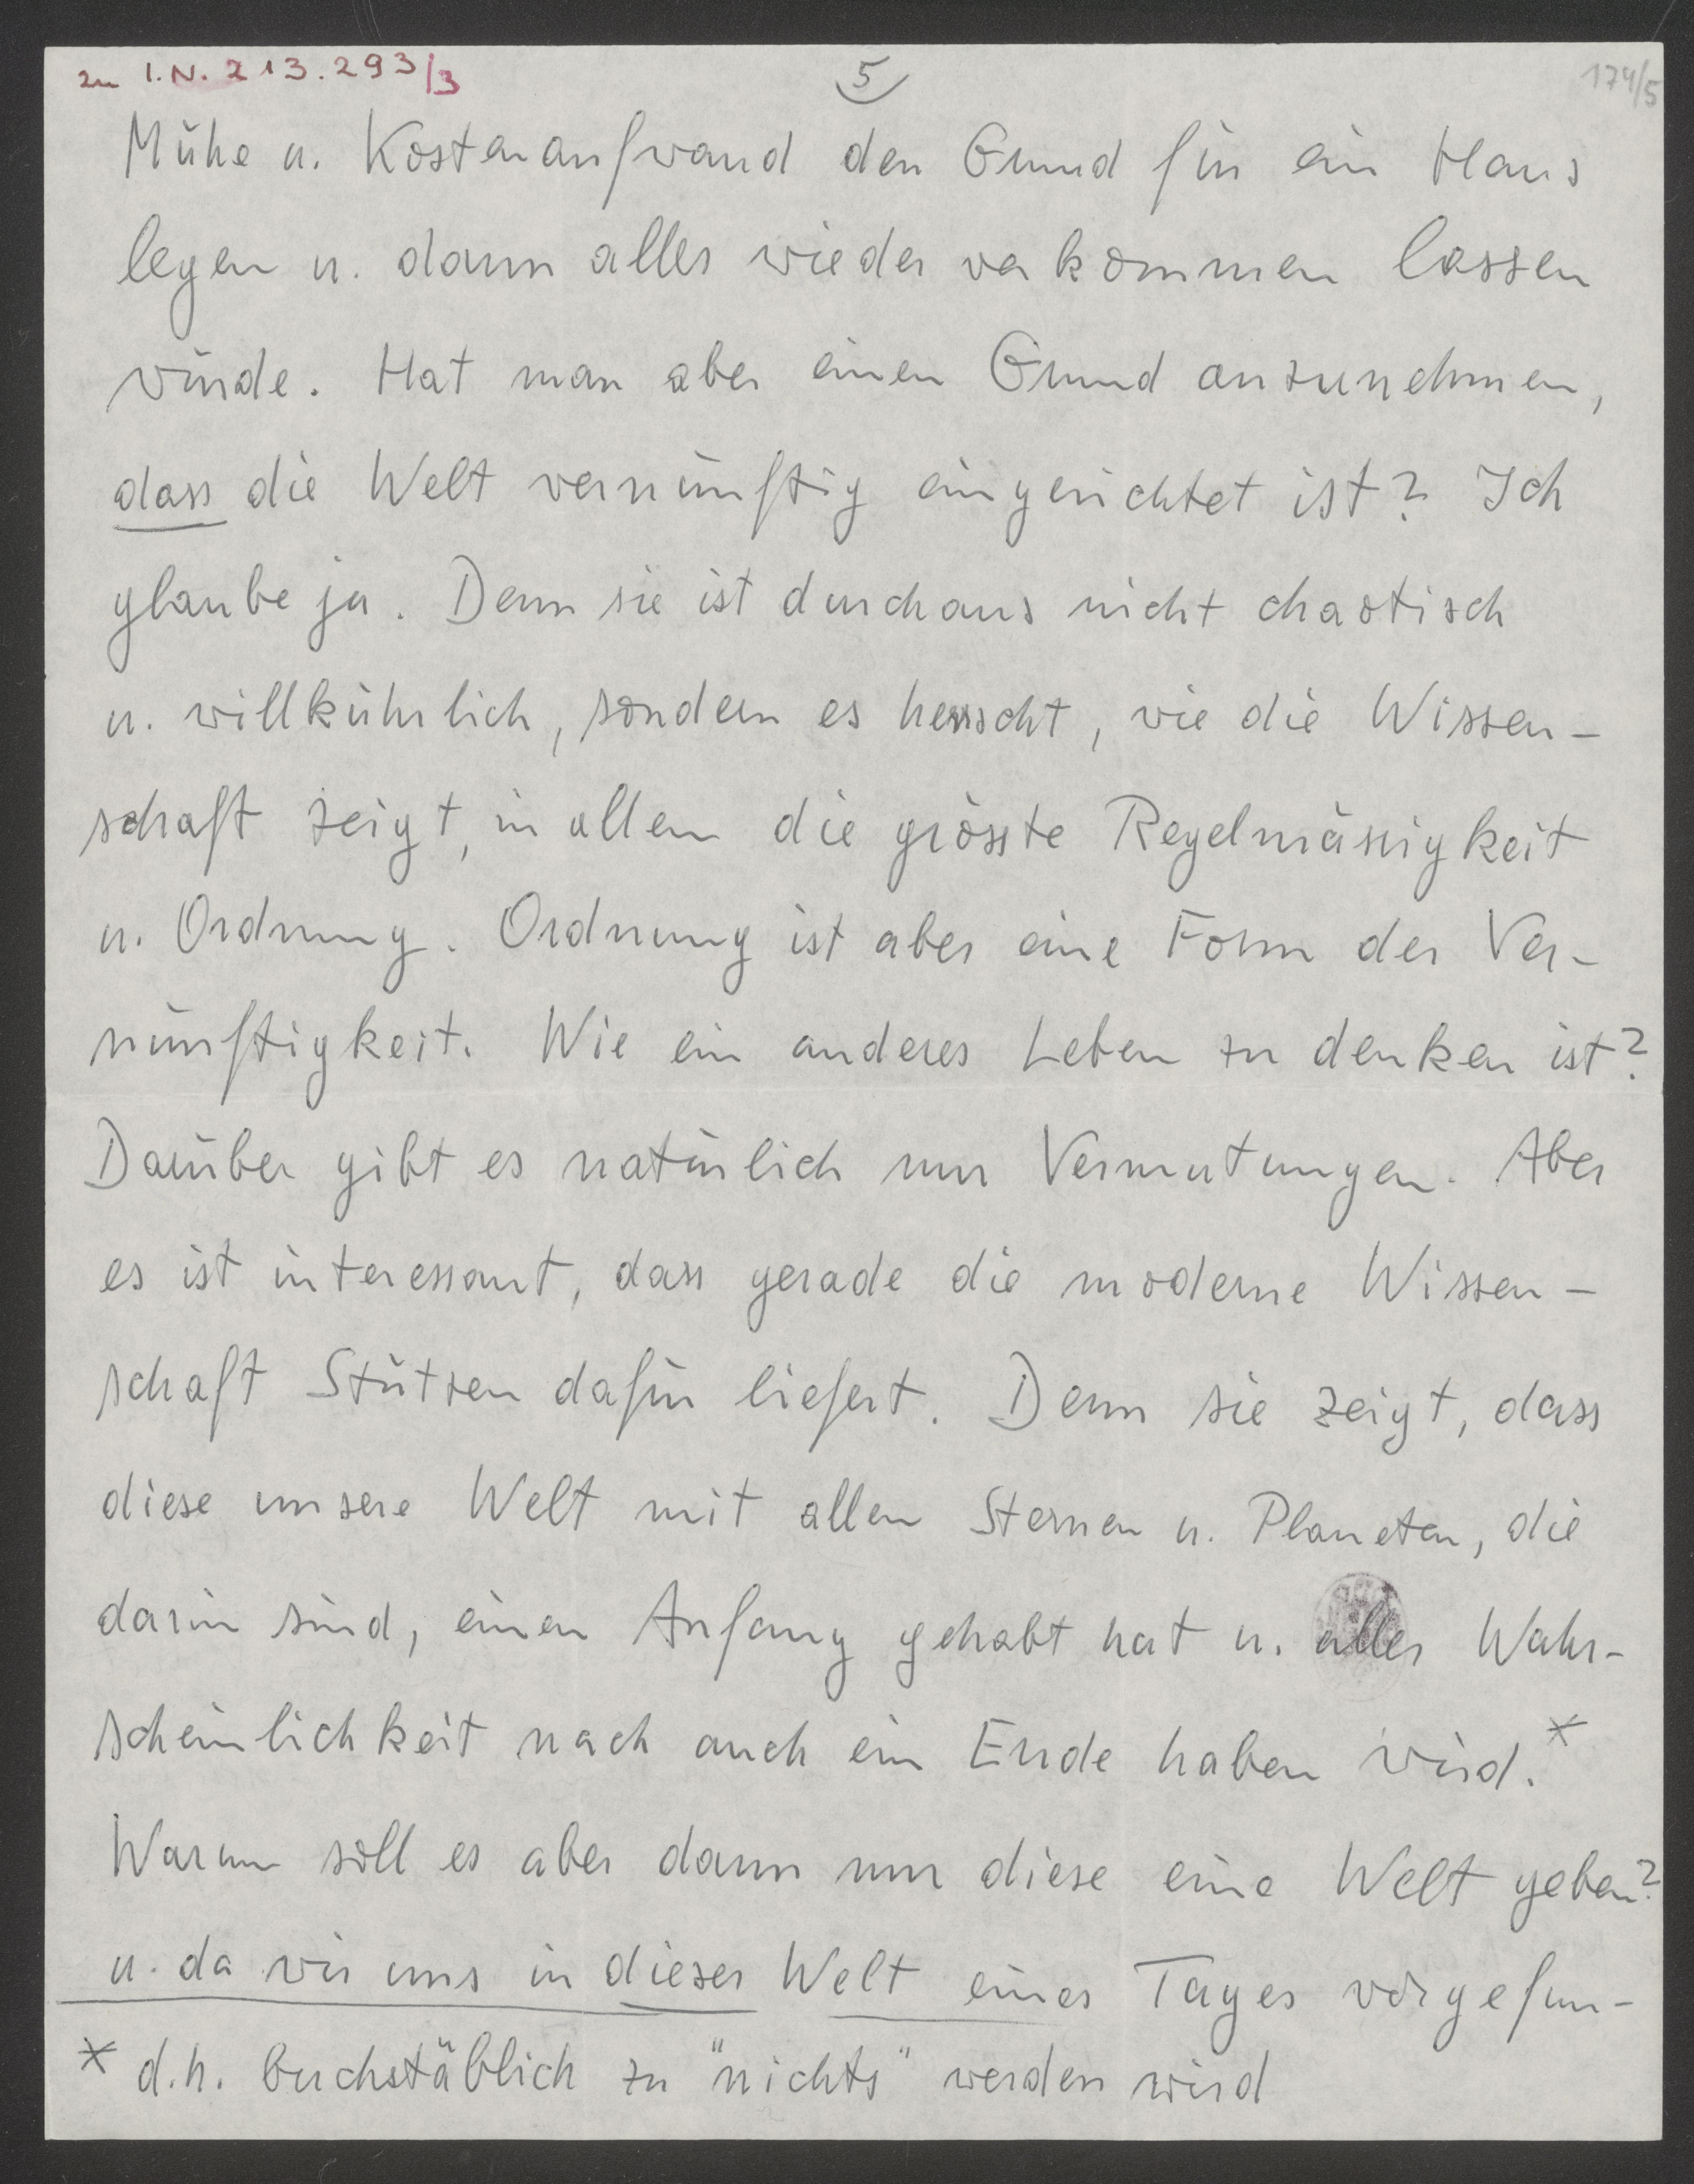 zu I.N. 213.293/3
5
174/5
Mühe u. Kostenaufwand den Grund für ein Haus
legen u. dann alles wieder verkommen lassen
würde. Hat man aber einen Grund anzunehmen,
dass die Welt vernünftig eingerichtet ist? Ich
glaube ja. Denn sie ist durchaus nicht chaotisch
u. willkührlich, sondern es herrscht, wie die Wissen-
schaft zeigt, in allem die grösste Regelmässigkeit
u. Ordnung. Ordnung ist aber eine Form der Ver-
nünftigkeit. Wie ein anderes Leben zu denken ist?
Darüber gibt es natürlich nur Vermutungen. Aber
es ist interessant, dass gerade die moderne Wissen-
schaft Stützen dafür liefert. Denn sie zeigt, dass
diese unsere Welt mit allen Sternen u. Planeten, die
darin sind, einen Anfang gehabt hat u. aller Wahr-
scheinlichkeit nach auch ein Ende haben wird.*
Warum soll es aber dann nur diese eine Welt geben?
u. da wir uns in dieser Welt eines Tages vorgefun-
* d.h. buchstäblich zu "nichts" werden wird